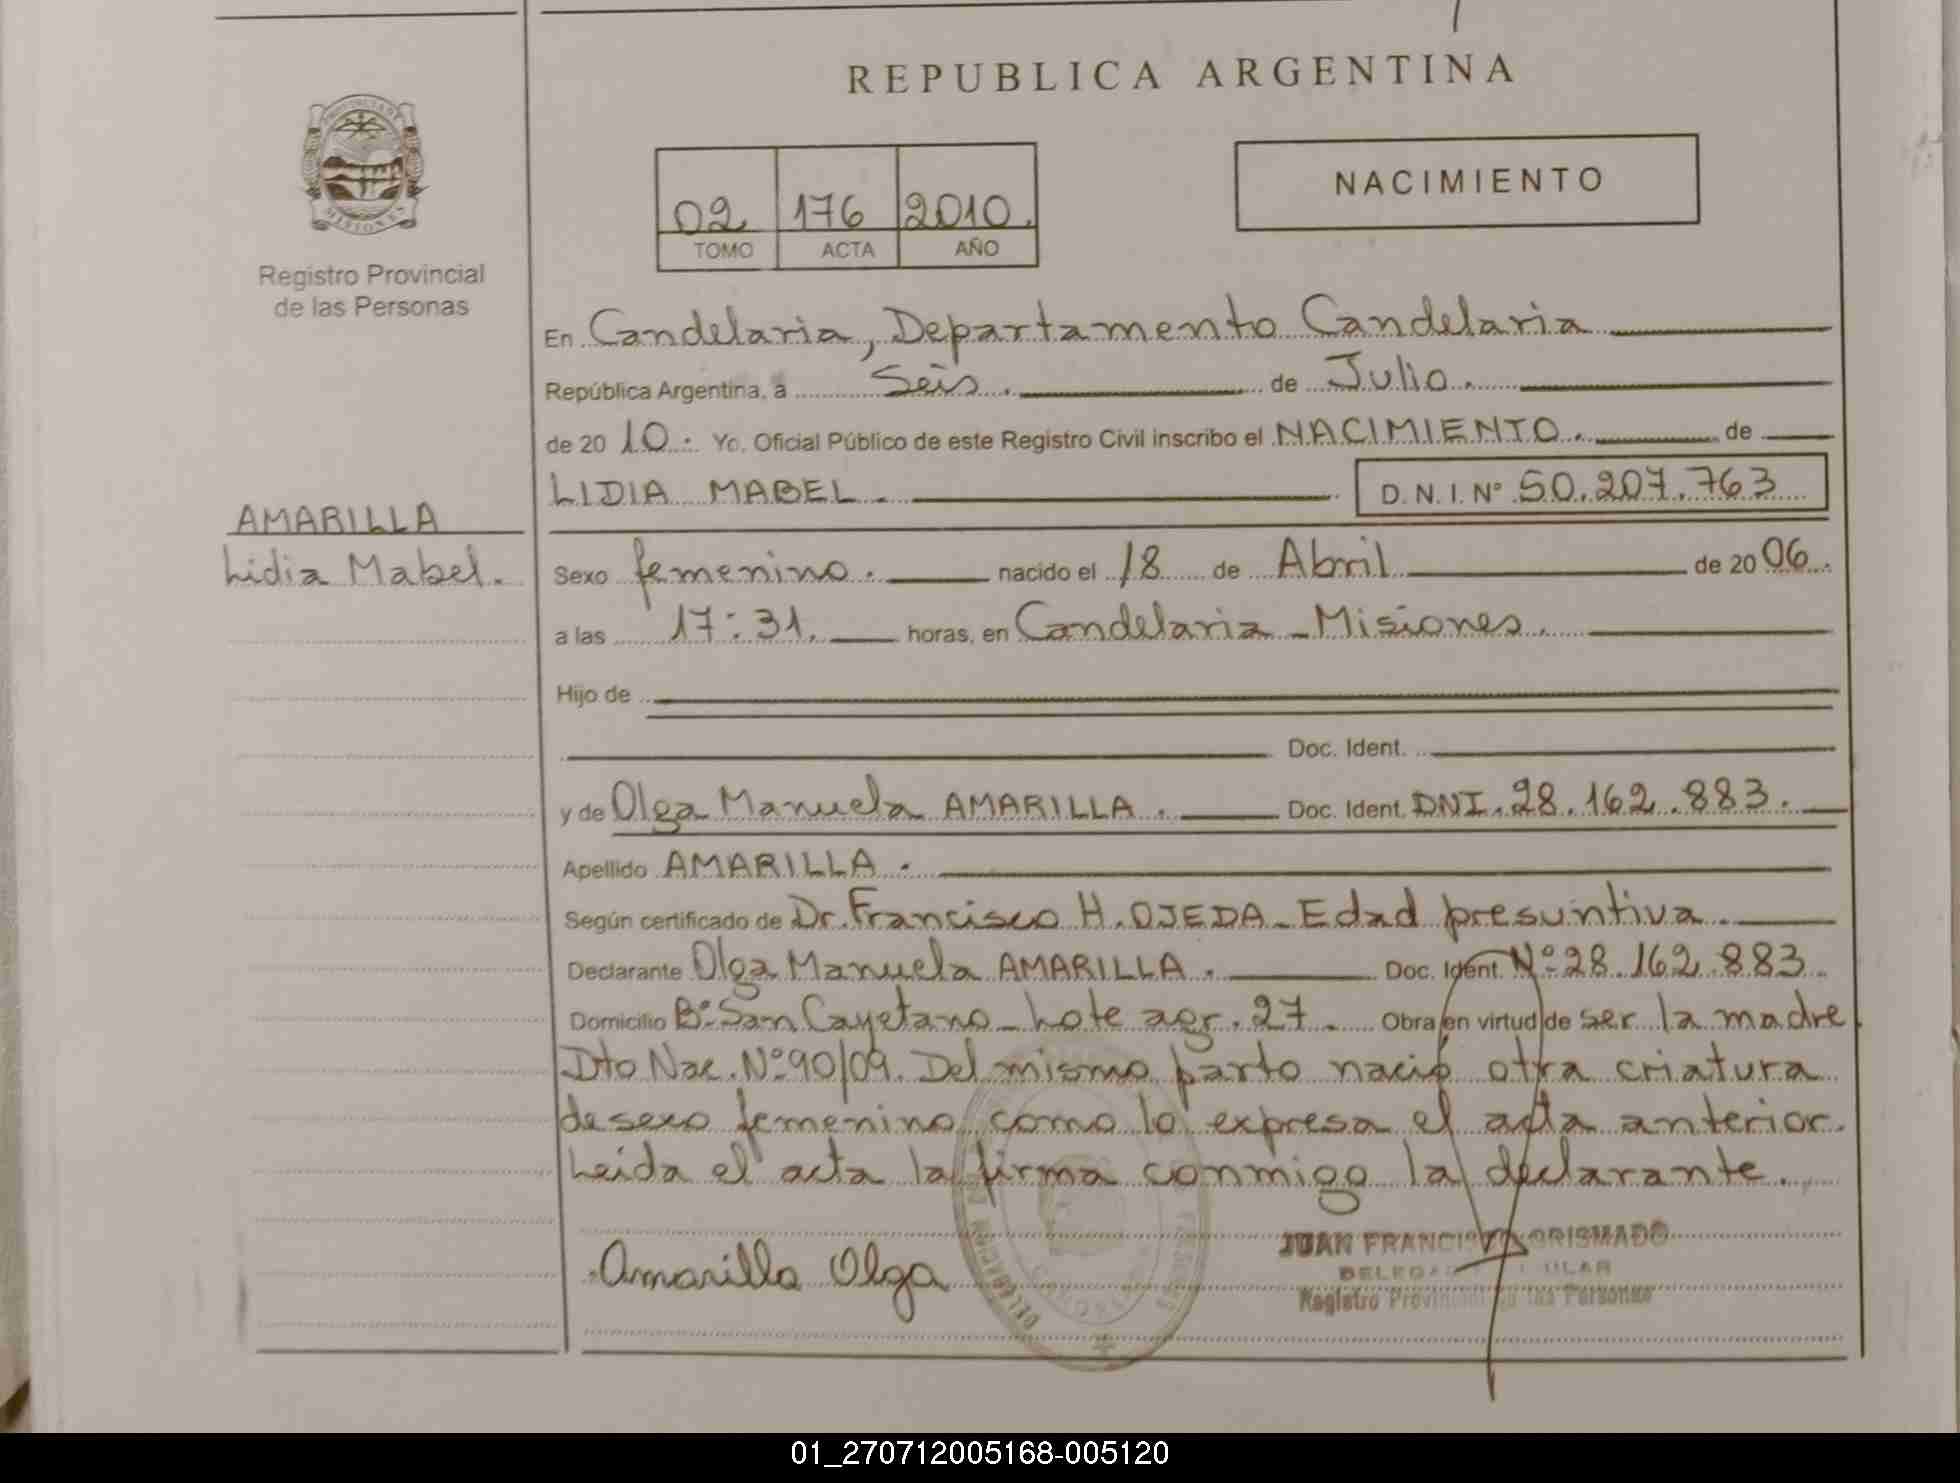 REPUBLICA ARGENTINA
PROVINCIA DE
MISIONES
Registro Provincial
de las Personas
02 176 2010.
TOMO ACTA AÑO
NACIMIENTO
En Candelaria, Departamento Candelaria
República Argentina, a Seis. de Julio.
de 20 10. Yo, Oficial Público de este Registro Civil inscribo el NACIMIENTO. de
LIDIA MABEL. D.N.I. Nº 50.207.763
AMARILLA
Lidia Mabel.
Sexo femenino. nacido el 18 de Abril de 20 06.
a las 17:31. horas, en Candelaria - Misiones.
Hijo de
Doc. Ident.
y de Olga Manuela AMARILLA. Doc. Ident. DNI. 28.162.883.
Apellido AMARILLA.
Según certificado de Dr. Francisco H. OJEDA - Edad presuntiva.
Declarante Olga Manuela AMARILLA. Doc. Ident. Nº 28.162.883.
Domicilio Bº San Cayetano - Lote agr. 27. Obra en virtud de ser la madre
Dto Nac. Nº 90/09. Del mismo parto nació otra criatura
de sexo femenino como lo expresa el acta anterior.
Leida el acta la firma conmigo la declarante.
Amarilla Olga
JUAN FRANCISCO GRISMADO
Registro Provincial de las Personas
01_270712005168-005120